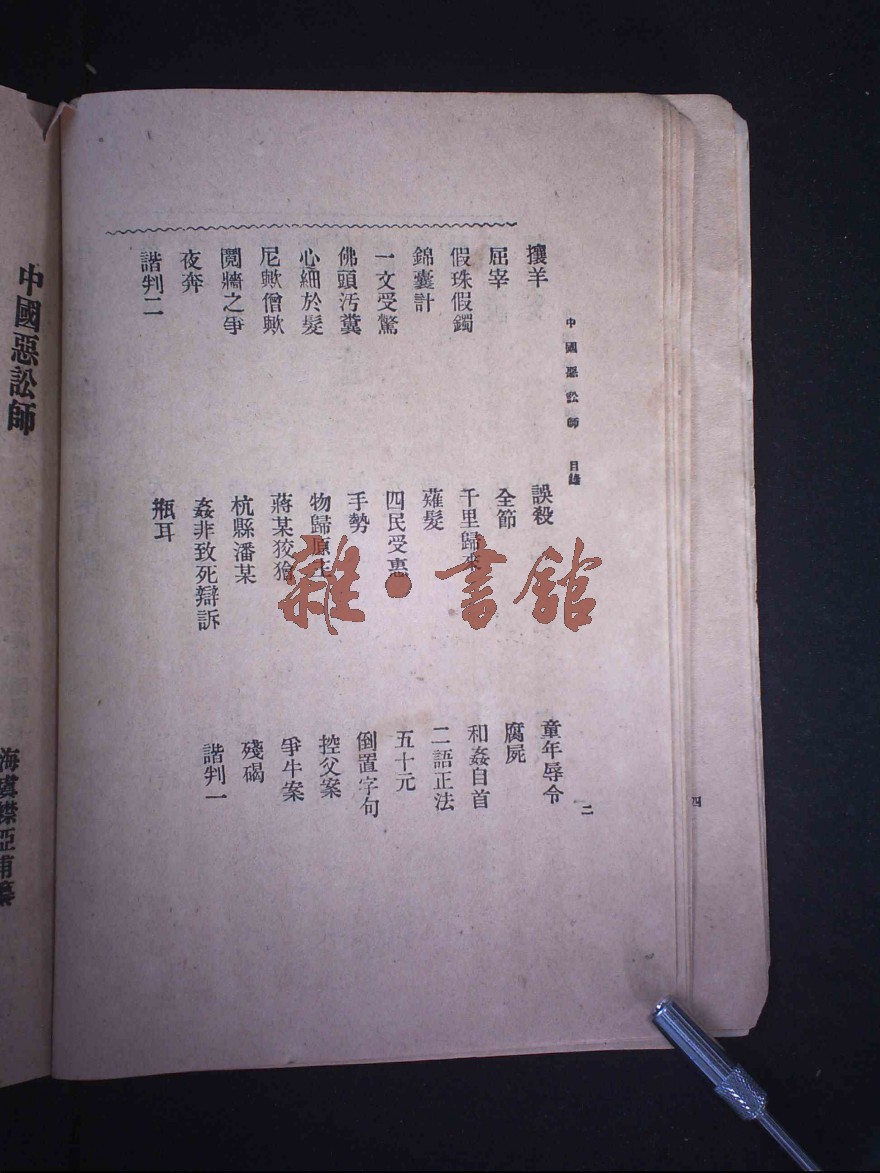 四
中國惡訟師 目錄 二
攘羊 誤殺 童年辱令
屈宰 全節 腐屍
假珠假鐲 千里歸來 和姦自首
錦囊計 薙髮 二語正法
一文受驚 四民受惠 五十元
佛頭汚糞 手勢 倒置字句
心細於髮 物歸原主 控父案
尼歟僧歟 蔣某狡獪 爭牛案
鬩牆之爭 杭縣潘某 殘碣
夜奔 姦非致死辯訴 諧判一
諧判二 瓶耳
中國惡訟師
海虞襟亞甫纂
雜·書館